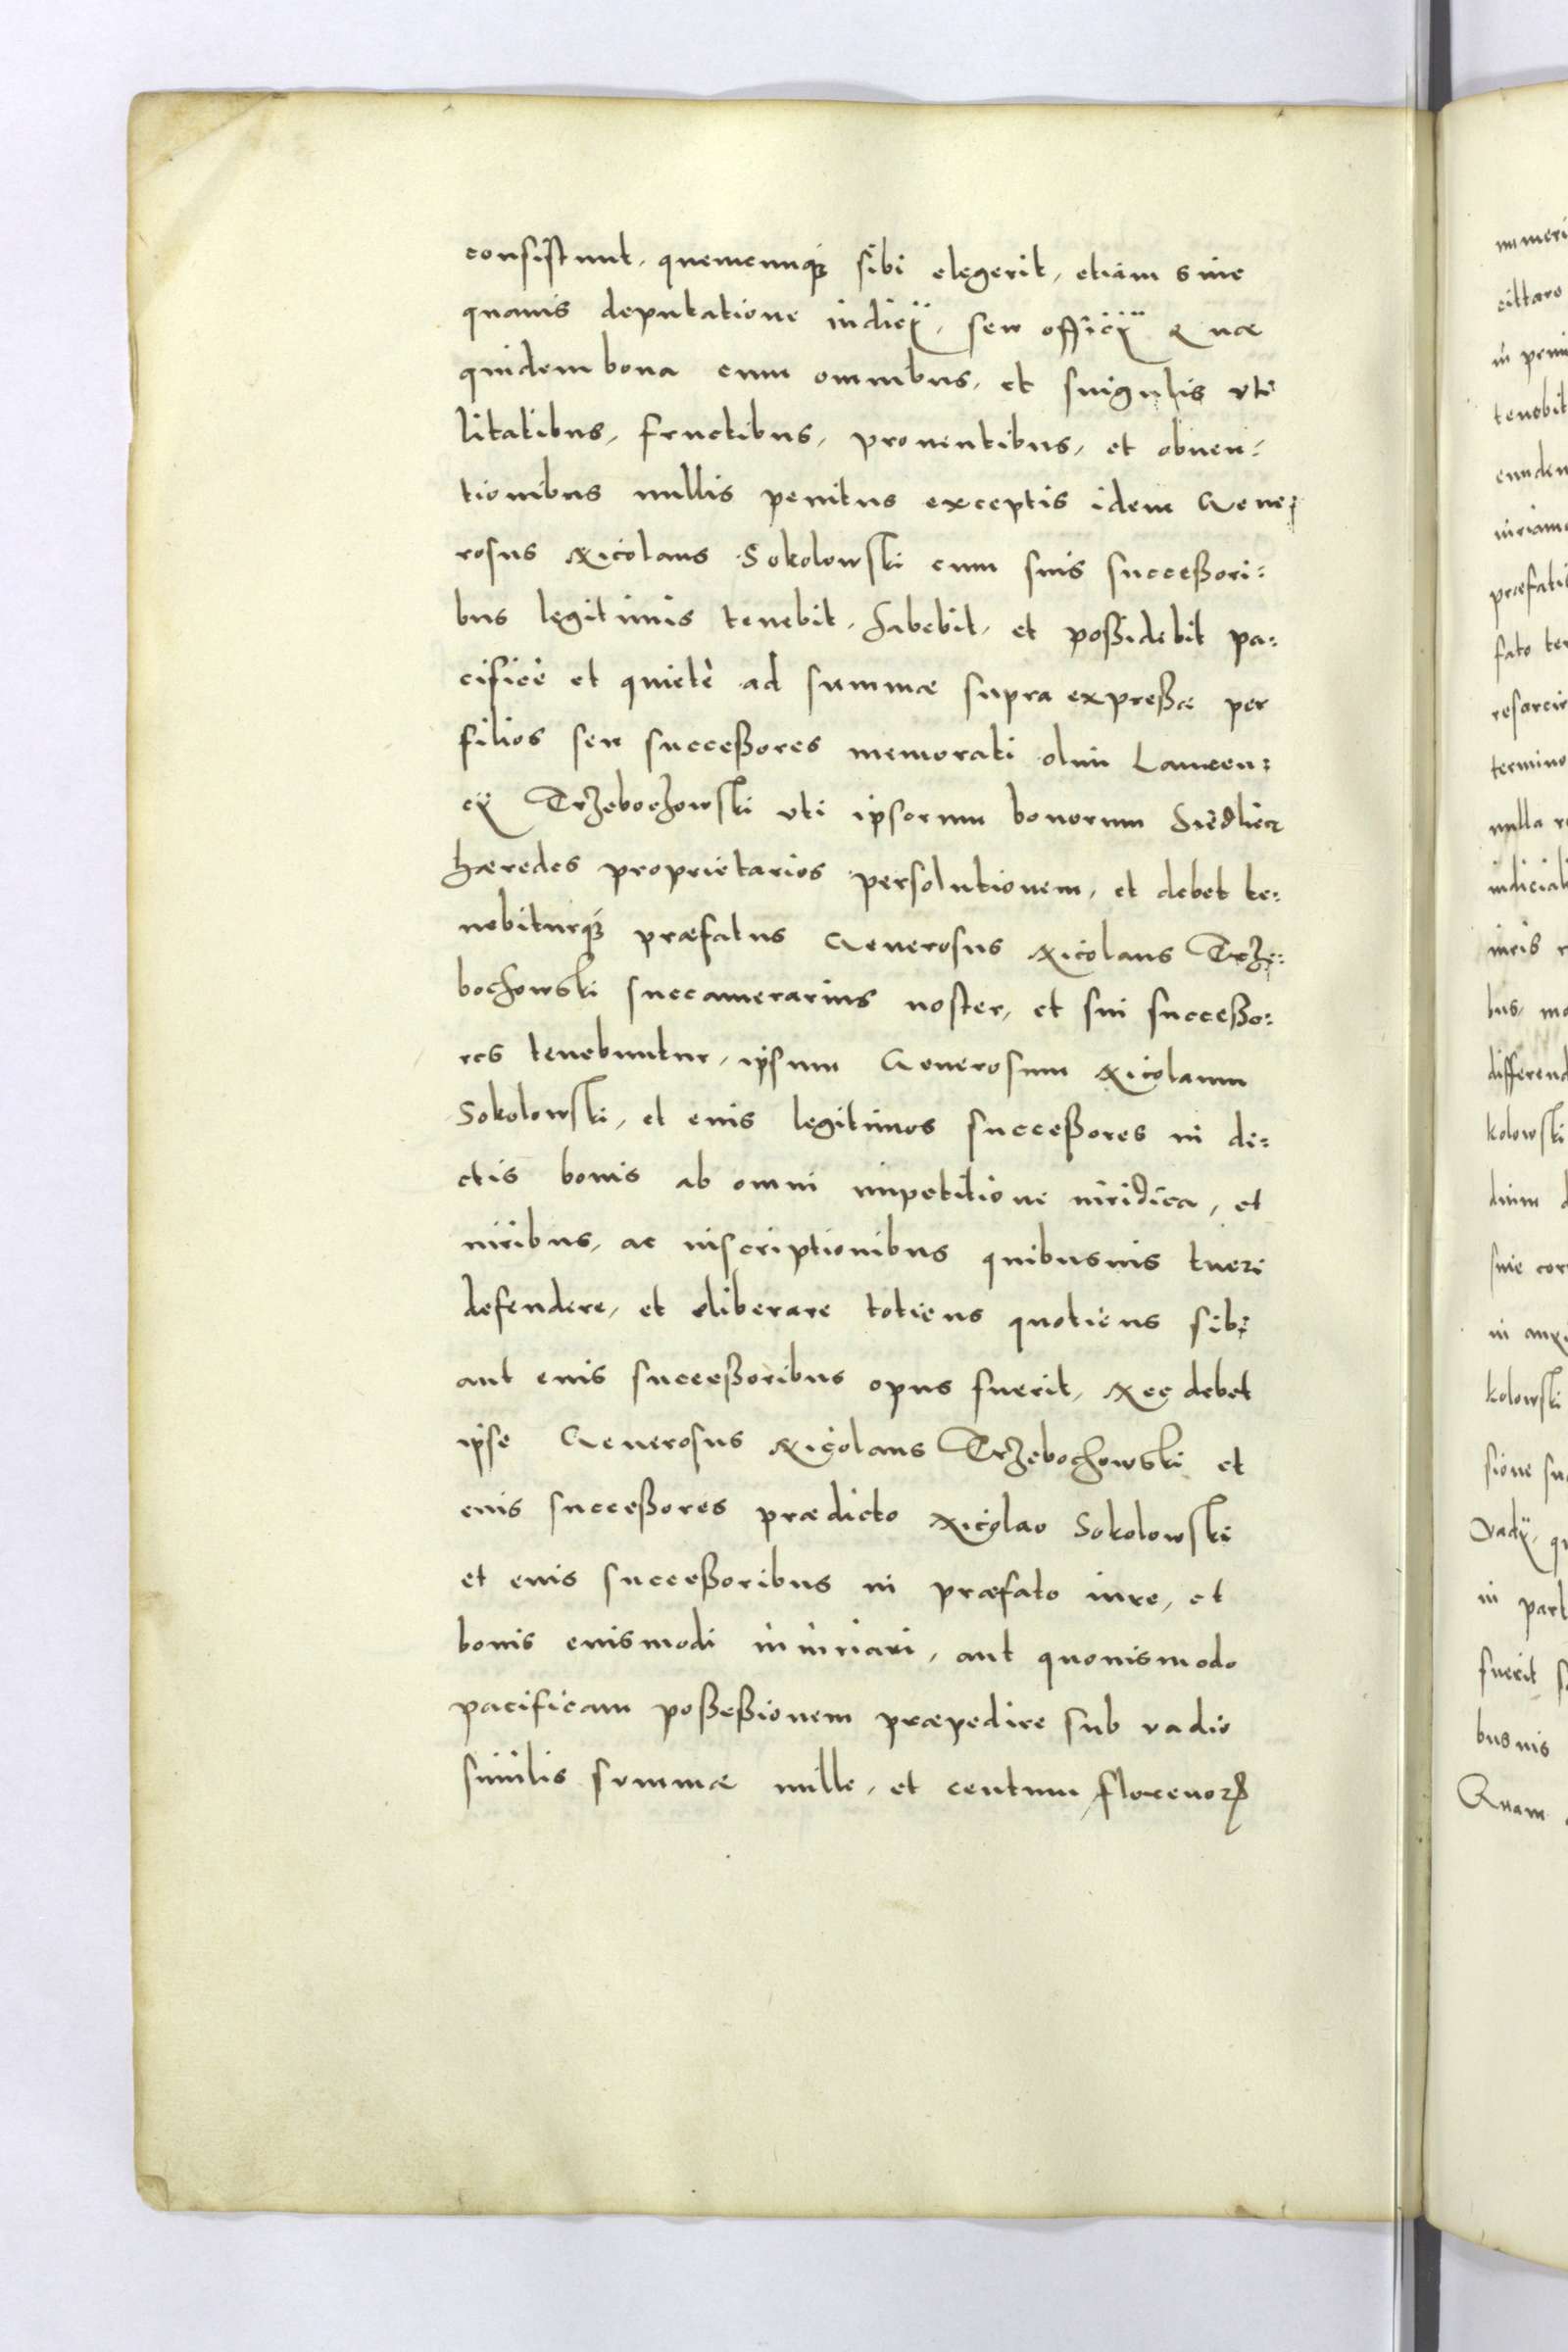 consistunt, quemcunq₃ sibi elegerit, etiam sine
quauis deputatione iudicÿ, seu officÿ Quæ
quidem bona cum omnibus, et singulis vti
litatibus, fructibus, prouentibus, et obuen:
tionibus nullis penitus exceptis idem Gene:
rosus Nicolaus Sokolowski cum suis successori:
bus legitimis tenebit, habebit, et possidebit pa:
cificè et quietè ad summæ supra expressæ per
filios seu successores memorati olim Lauren:
cÿ Trzebochowski vti ipsorum bonorum Siedliecz
hæredes proprietarios persolutionem, et debet te:
nebiturq₃ præfatus Generosus Nicolaus Trze:
bochowski succamerarius noster, et sui successo:
res tenebuntur, ipsum Generosum Nicolaum
Sokolowski, et eius legitimos successores in di:
ctis bonis ab omni impetitione iuridica, et
iuribus, ac inscriptionibus quibusuis tueri
defendere, et eliberare totiens quotiens sibi
aut eius successoribus opus fuerit, Nec debet
ipse Generosus Nicolaus Trzebochowski et
eius successores prædicto Nicolao Sokolowski
et eius successoribus in præfato iure, et
bonis eiusmodi iniuriari, aut quouismodo
pacificam possessionem præpedire sub vadio
similis summæ mille, et centum florenoꝝ
numeri
cittare
in prim
tenebit
eunden
iuriam
præfati
fato ter
resarcir
termino
nulla r
iudicial
iuris r
bus, mo
differend
kolowski
dium d
siue cor
in anx
kolowski
sione su
Vadÿ, qu
in part
fuerit s
busuis
Quam